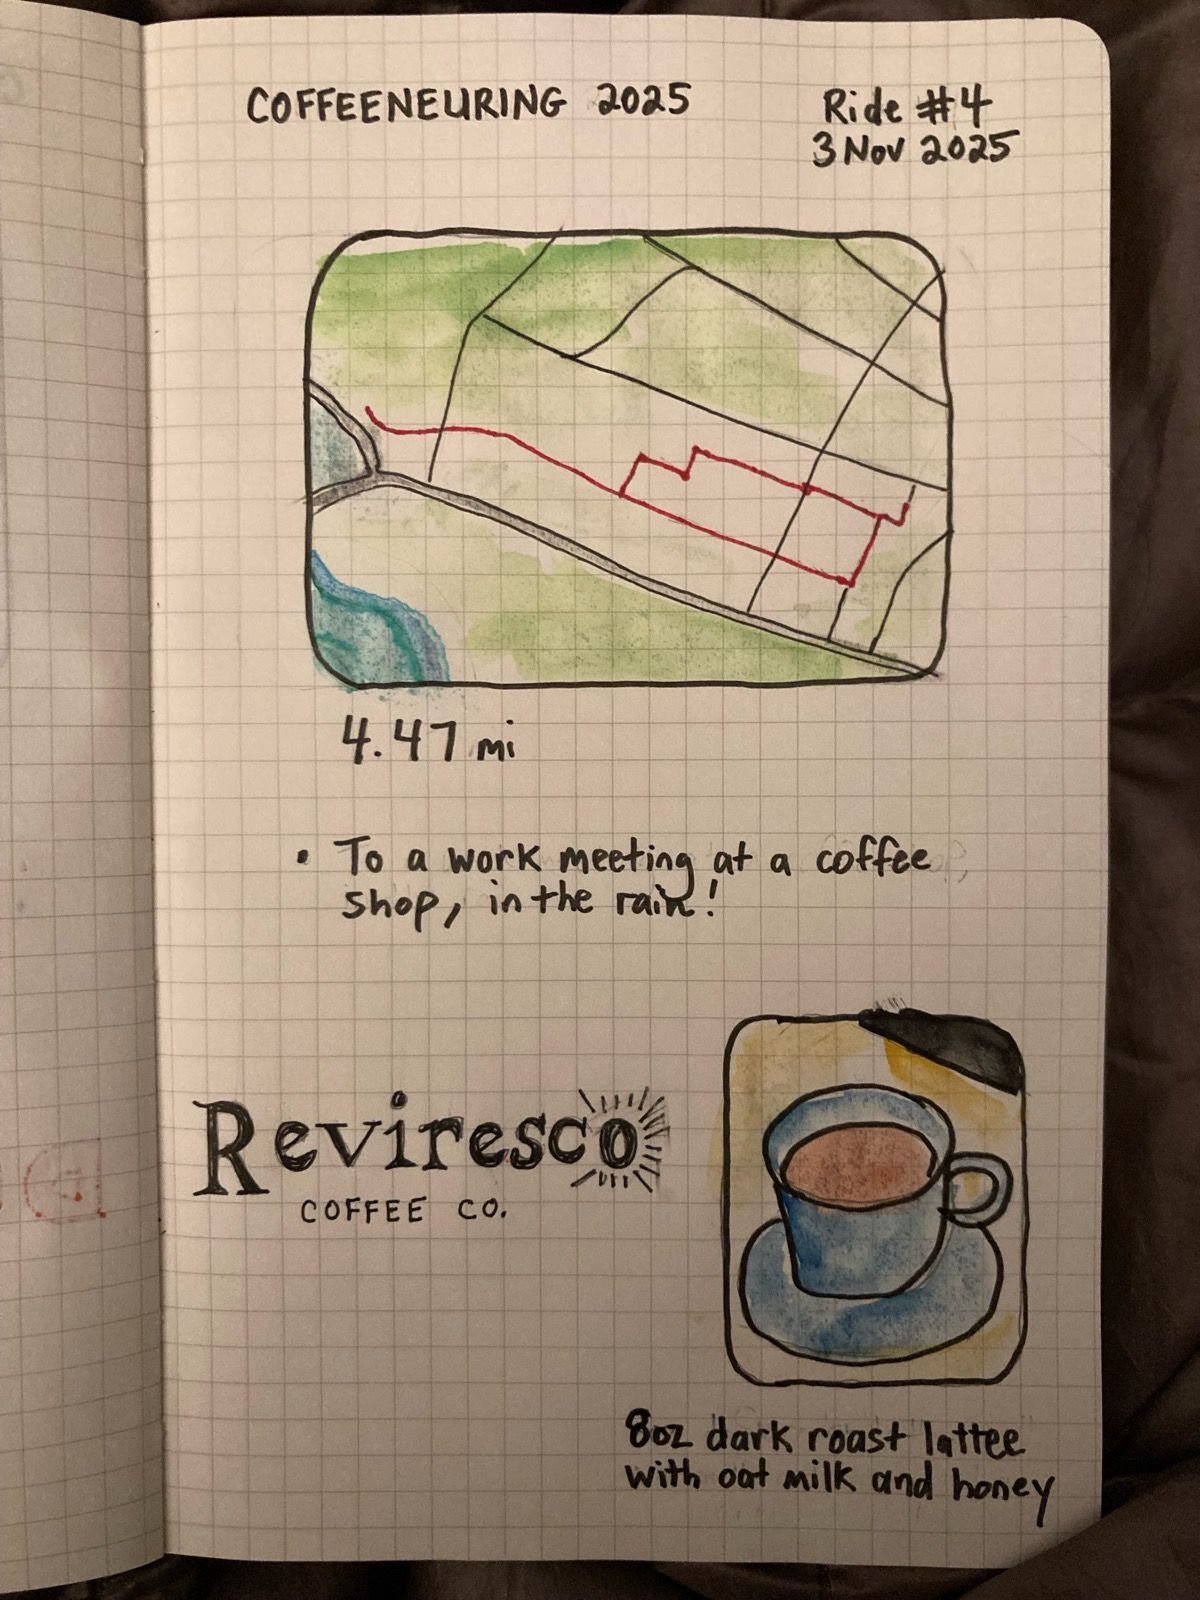 COFFEENEURING 2025
Ride #4
3 Nov 2025
4.47 mi
• To a work meeting at a coffee
shop, in the rain!
Reviresco
COFFEE CO.
8oz dark roast lattee
with oat milk and honey